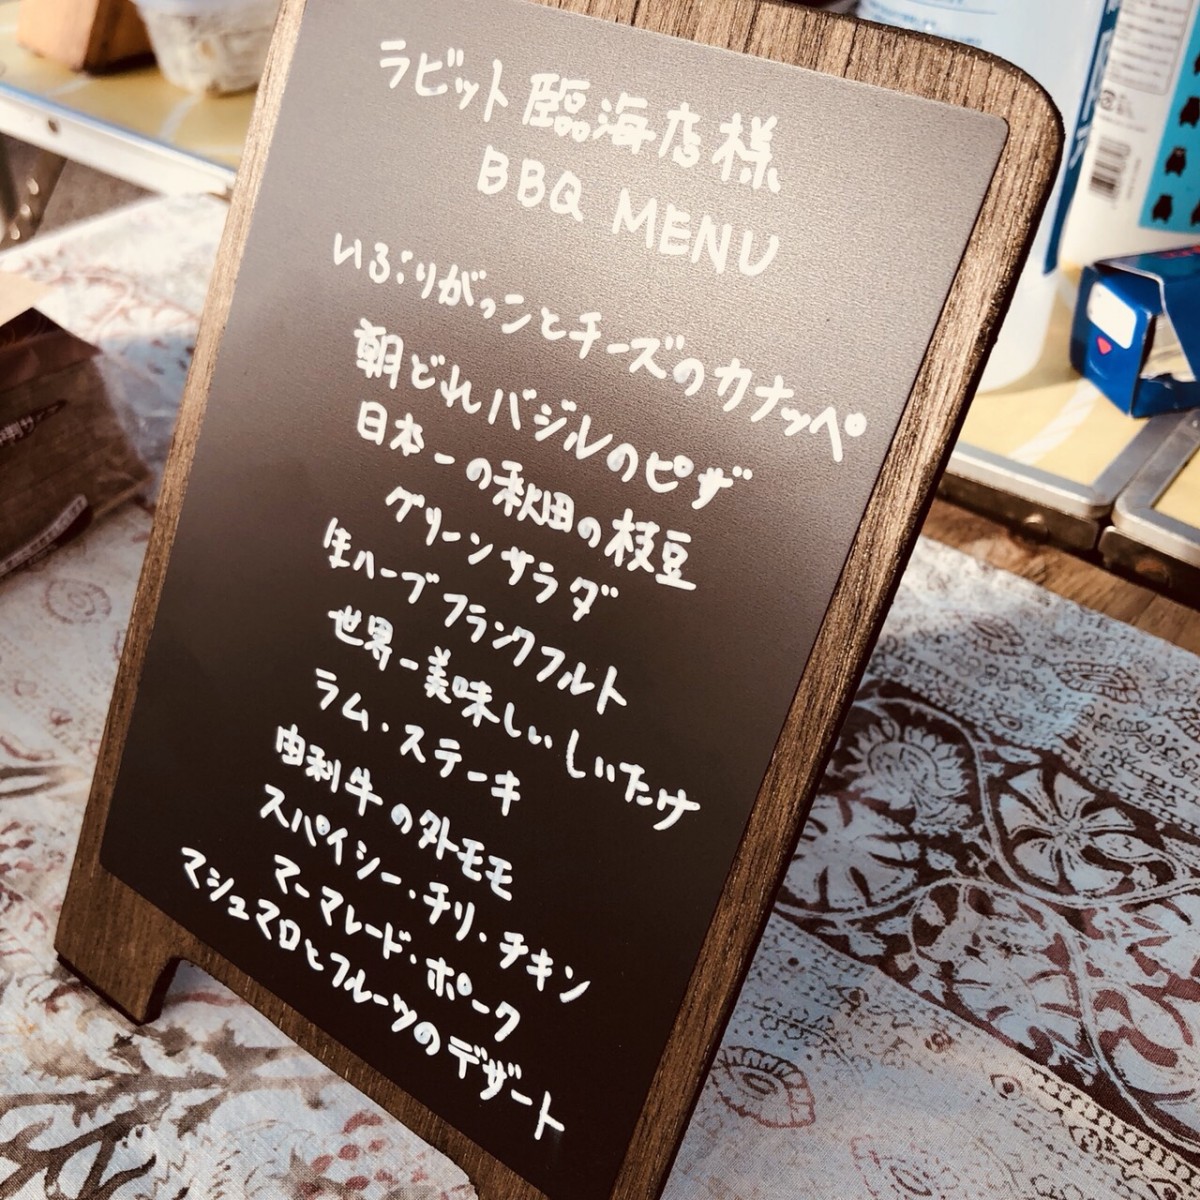 ラビット臨海店様
BBQ MENU
いぶりがっことチーズのカナッペ
朝どれバジルのピザ
日本一の秋田の枝豆
グリーンサラダ
生ハーブフランクフルト
世界一美味しいしいたけ
ラム・ステーキ
由利牛の外モモ
スパイシー・チリ・チキン
マーマレード・ポーク
マシュマロとフルーツのデザート